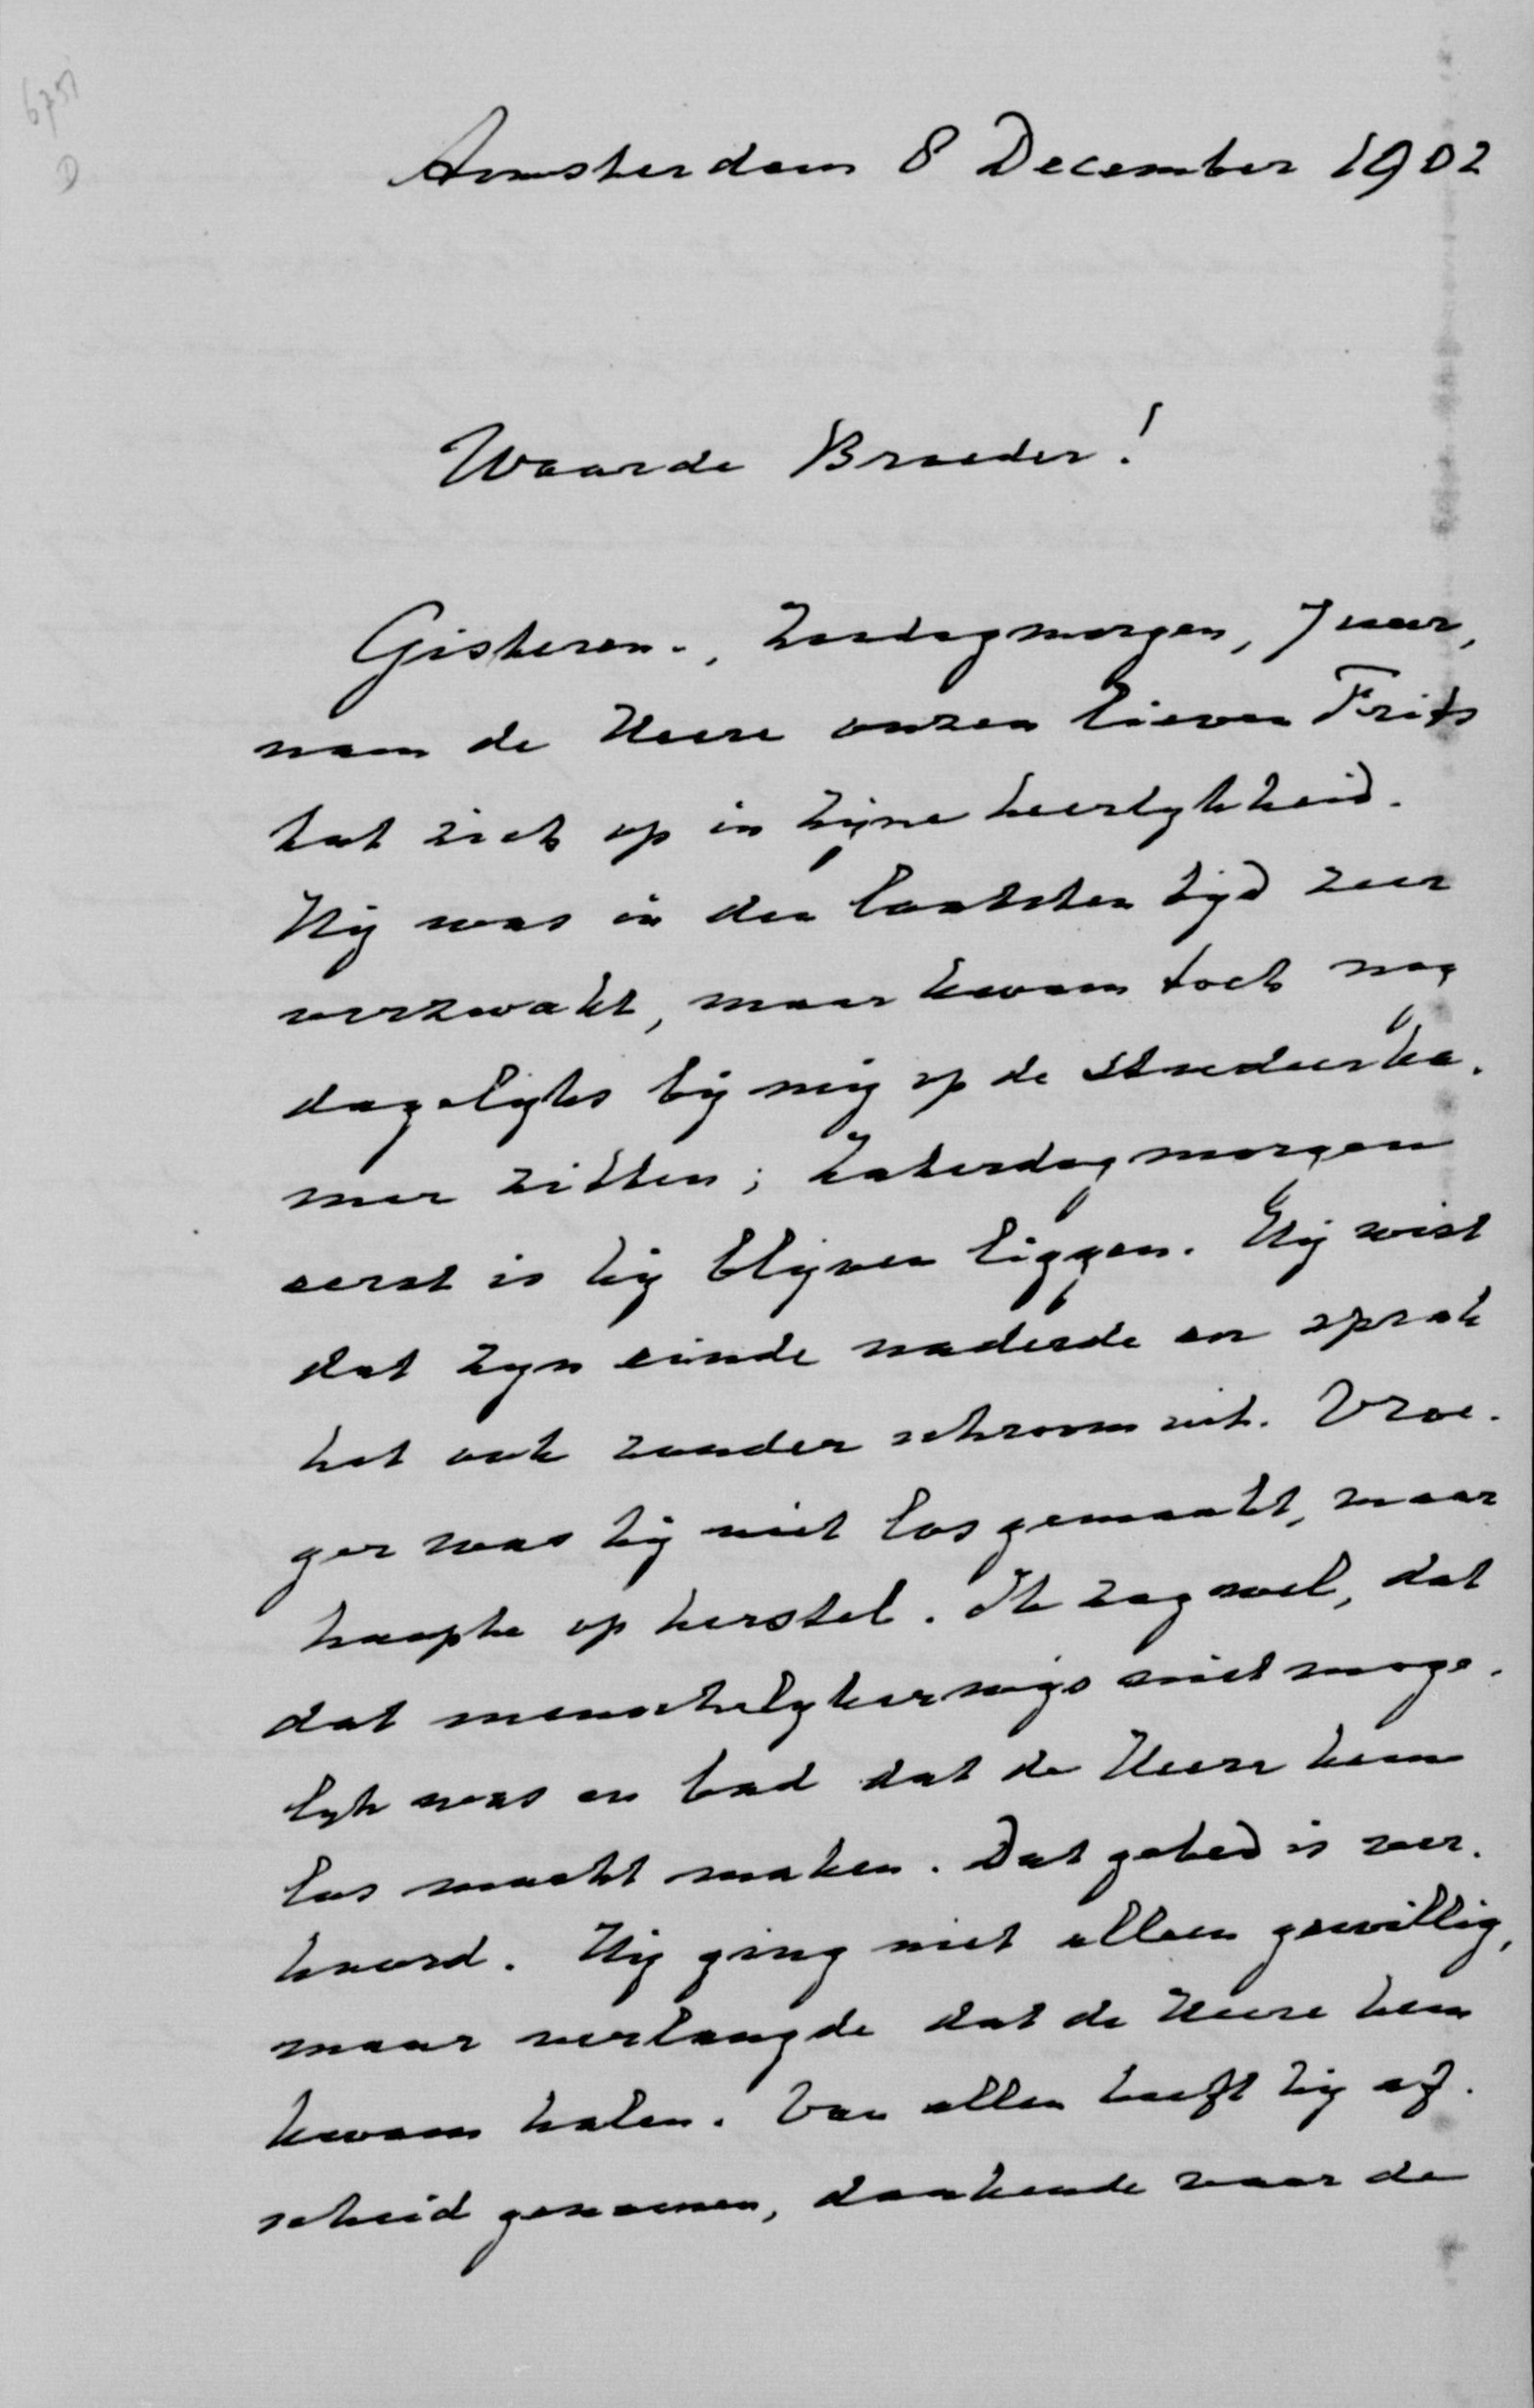 6751
D
Amsterdam 8 December 1902
Waarde Broeder!
Gisteren., Zondagmorgen, 7 uur,
nam de Heere onzen lieven Frits
tot zich op in Zijne heerlykheid.
Hij was in den laatsten tijd zeer
verzwakt, maar kwam toch nog
dagelyks bij mij op de studeerka-
mer zitten; Zaterdagmorgen
eerst is hij blijven liggen. Hij wist
dat zyn einde naderde en sprak
het ook zonder schroom uit. Vroe-
ger was hij niet los gemaakt, maar
hoopte op herstel. Ik zag wel, dat
dat menschelykerwijs niet moge-
lyk was en bad dat de Heere hem
los mocht maken. Dat gebed is ver-
hoord. Hij ging niet alleen gewillig,
maar verlangde dat de Heere hem
kwam halen. Van allen heeft hij af-
scheid genomen, dankende voor de